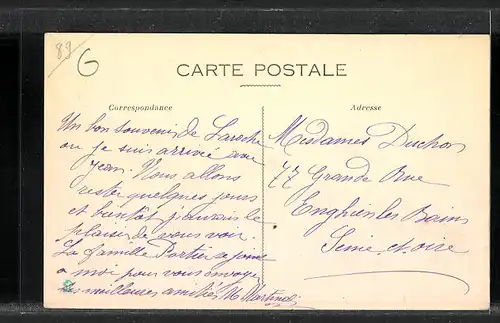 89
G
CARTE POSTALE
Correspondance
Un bon souvenir de Laroche
ou je suis arrivée avec
Jean. Nous allons
rester quelques jours
et bientôt j'aurais le
plaisir de vous voir.
La famille Portier se joint
a moi pour vous envoyer
meilleures amitiés M Martinel
Adresse
Mesdames Duchos
77 Grande Rue
Enghien les Bains
Seine et oise